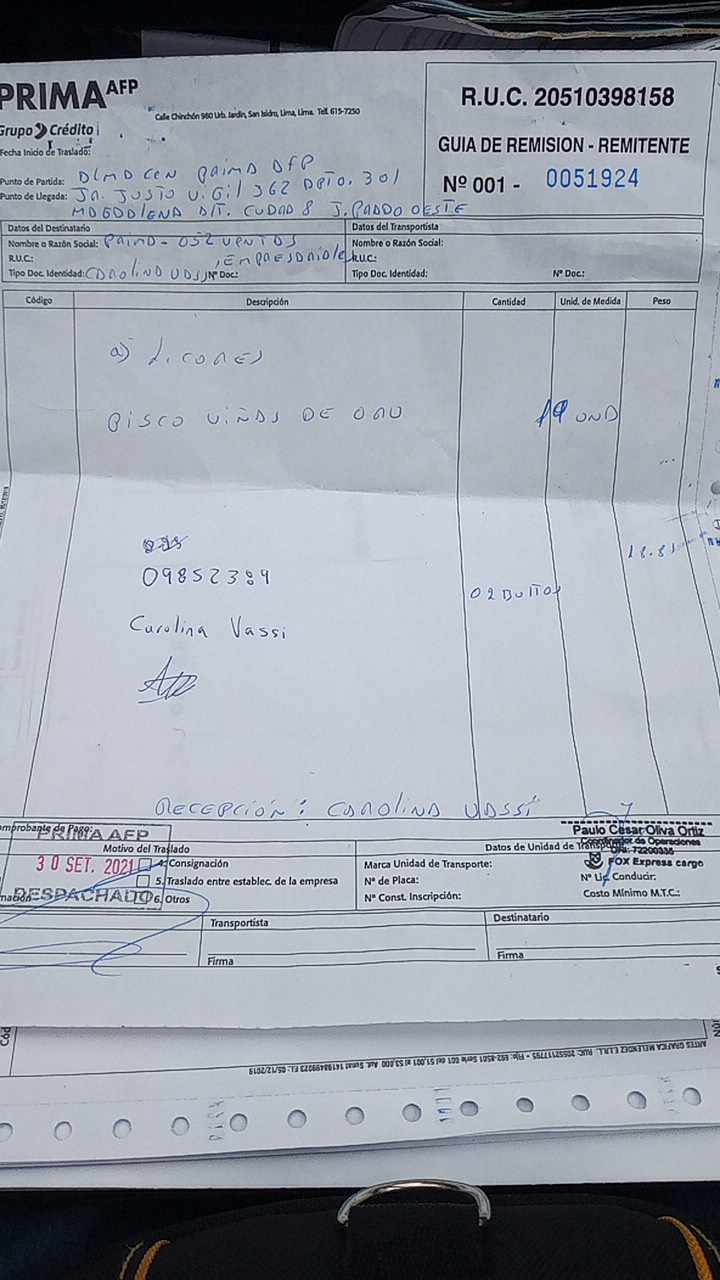 PRIMA AFP
Grupo Crédito
Calle Chinchón 980 Urb. Jardín, San Isidro, Lima, Lima. Telf. 615-7250
R.U.C. 20510398158
GUIA DE REMISION - REMITENTE
Nº 001 - 0051924
Fecha Inicio de Traslado:
Punto de Partida: ALMACEN PRIMA AFP
Punto de Llegada: JR. JUSTO VIGIL 362 DPTO. 301
MAGDALENA ALT. CUADRA 8 J. PARDO OESTE
Datos del Destinatario
Nombre o Razón Social: PRIMA - 052 VENTAS
R.U.C.: EMPRESARIALES
Tipo Doc. Identidad: CAROLINA VASSI Nº Doc:
Datos del Transportista
Nombre o Razón Social:
R.U.C.:
Tipo Doc. Identidad: Nº Doc.:
Código Descripción Cantidad Unid. de Medida Peso
a) LICORES
PISCO VIÑAS DE ORO 19 UND
18.81
09852389
02 BULTOS
Carolina Vassi
RECEPCIÓN: CAROLINA VASSI
omprobante de Pago:
PRIMA AFP
30 SET. 2021
DESPACHADO
Motivo del Traslado
4. Consignación
5. Traslado entre establec. de la empresa
6. Otros
Datos de Unidad de Transporte
Marca Unidad de Transporte:
Nº de Placa:
Nº Const. Inscripción:
Paulo César Oliva Ortiz
Coordinador de Operaciones
DNI: 72200335
FOX Express cargo
Nº Lic. Conducir:
Costo Mínimo M.T.C.:
Transportista
Firma
Destinatario
Firma
ARTES GRAFICA MELENDEZ E.I.R.L. RUC: 20552117795 - Fijo: 692-8501 Serie 001 del 51,001 al 53,000 Aut. Sunat 1419849023 F.I.: 05/12/2019